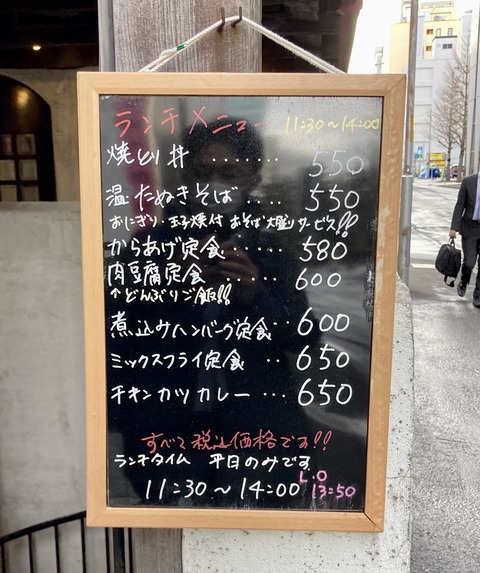 ランチメニュー 11:30〜14:00
焼とり丼 ....... 550
温・たぬきそば .... 550
おにぎり・玉子焼付 おそば大盛りサービス!!
からあげ定食 ..... 580
肉豆腐定食 ..... 600
↑どんぶりご飯!!
煮込みハンバーグ定食 .. 600
ミックスフライ定食 ... 650
チキンカツカレー ... 650
すべて税込価格です!!
ランチタイム 平日のみです
11:30〜14:00 L.O 13:50